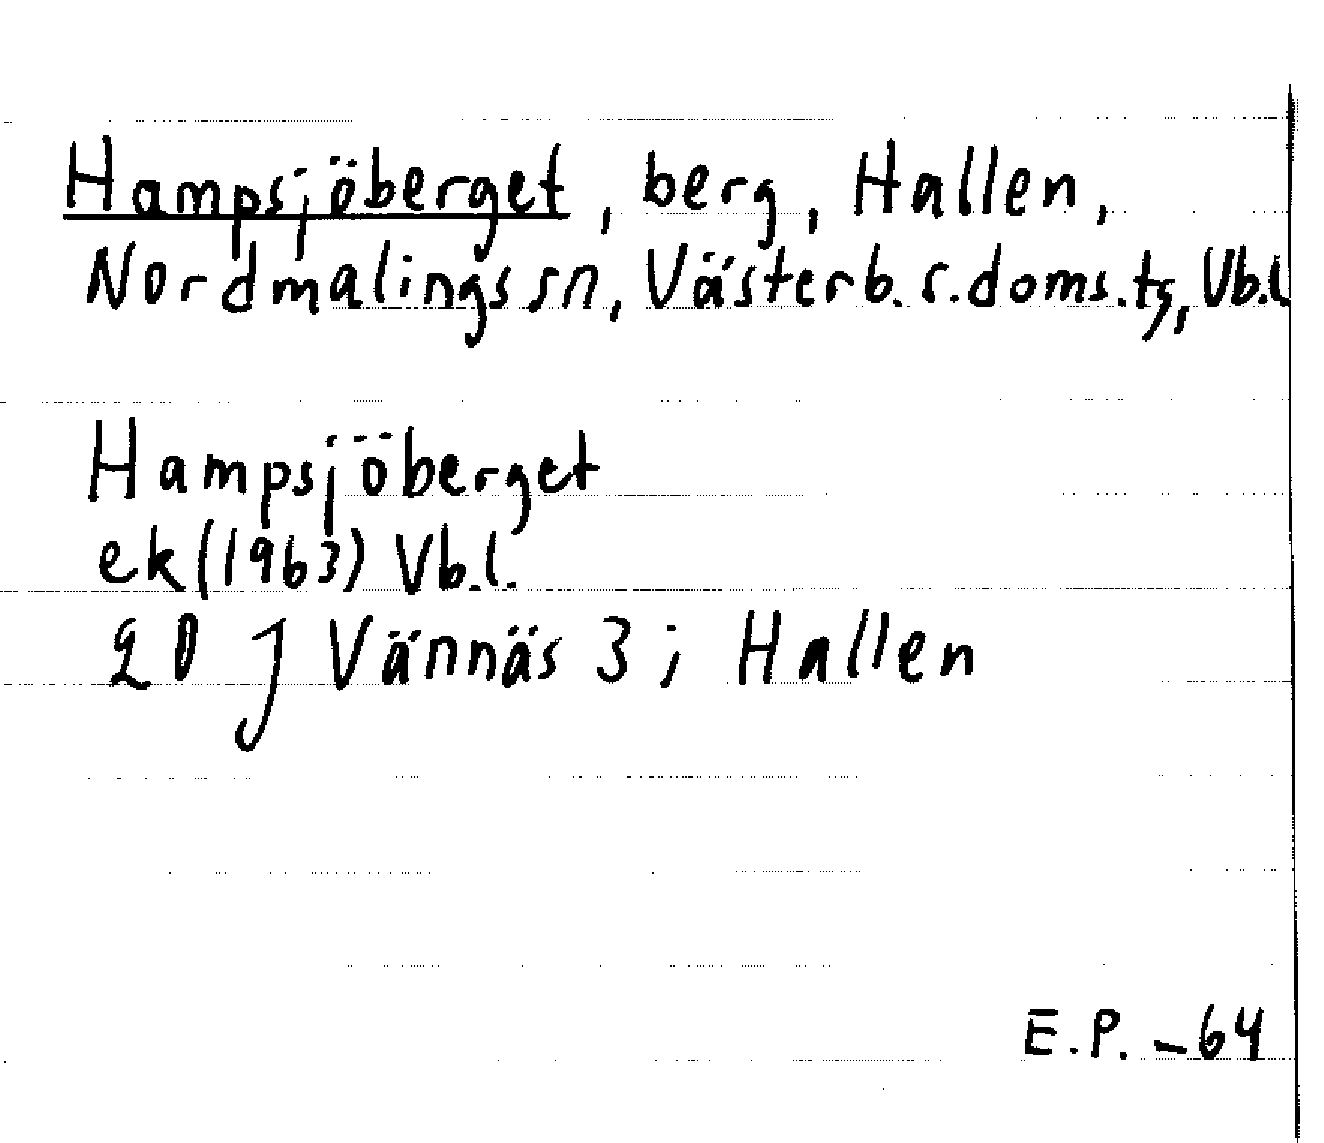 Hampsjöberget, berg, Hallen,
Nordmalings sn, Västerb. s. doms.tg, Vb.l
Hampsjöberget
ek (1963) Vb.l.
20 J Vännäs 3; Hallen
E.P. -64